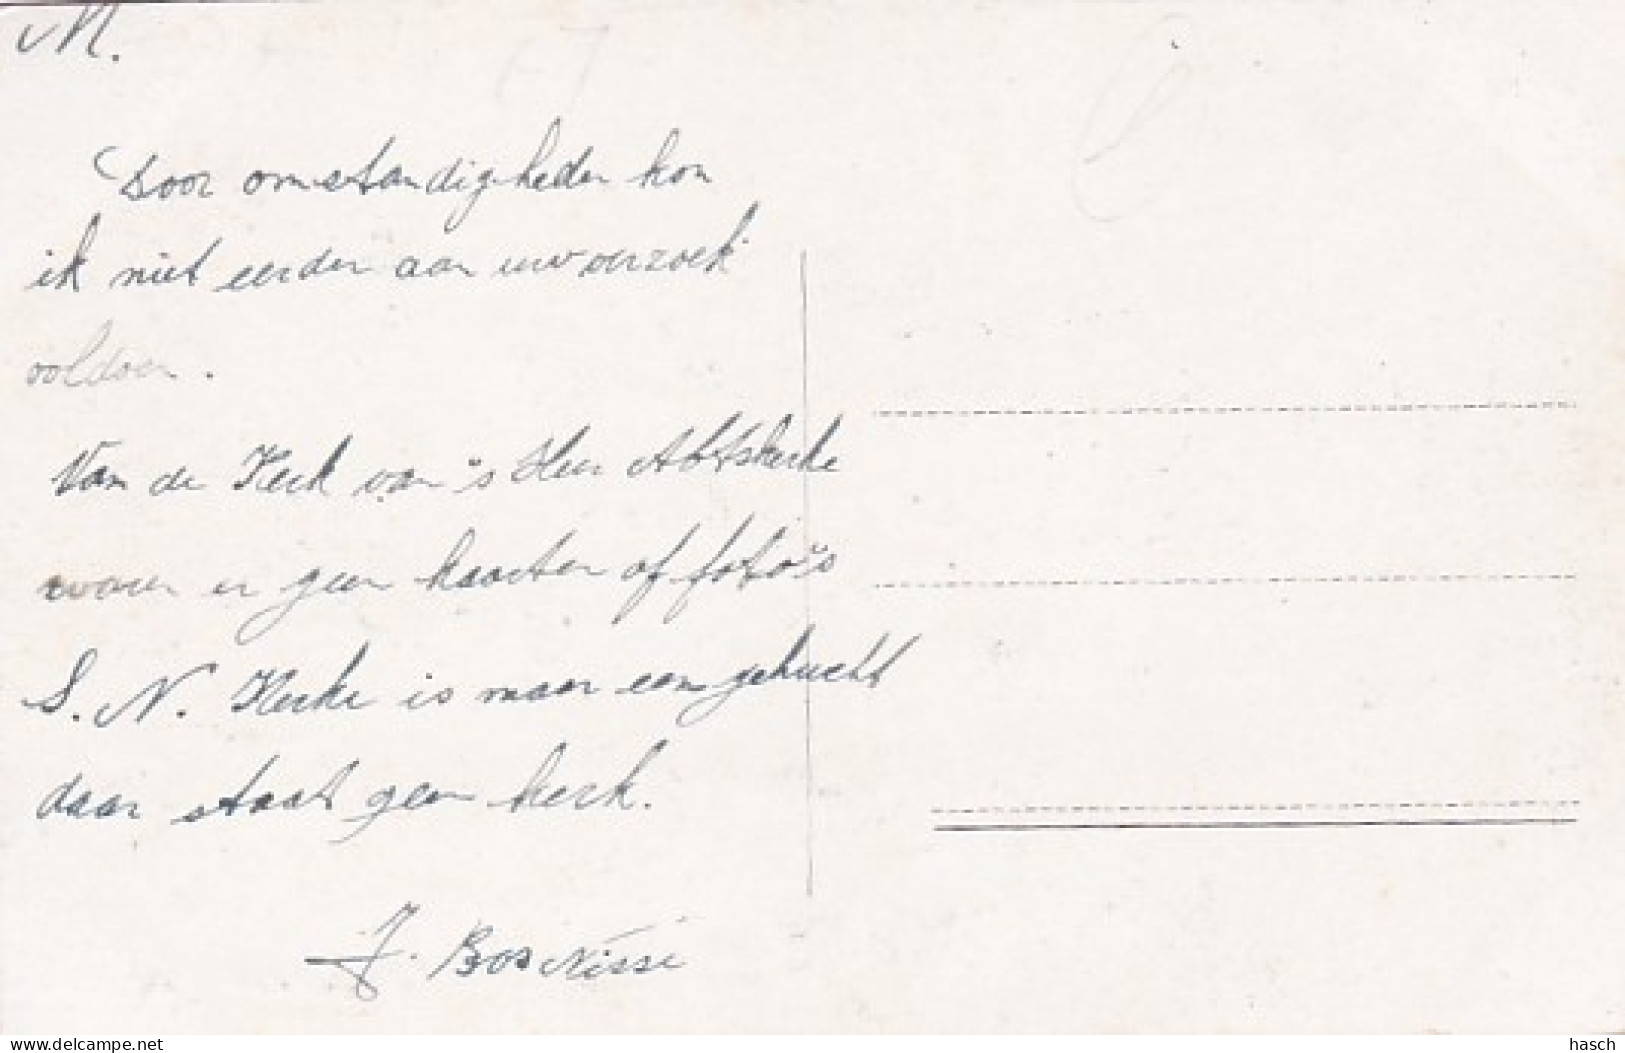 M.
Door omstandigheden kon
ik niet eerder aan uw verzoek
voldoen.
Van de Kerk van 's Heer Abtskerke
waren er geen kaarten of foto's
S. N. Kerke is maar een gehucht
daar staat geen kerk.
J. Bos
www.delcampe.net
hasch